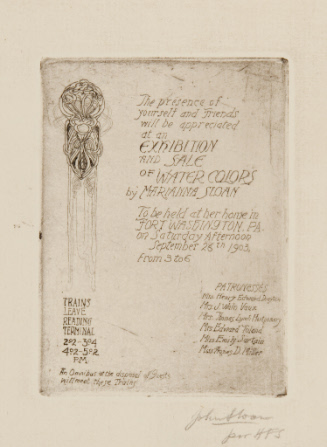 The presence of
yourself and friends
will be appreciated
at an
EXHIBITION
AND SALE
OF WATER COLORS
by MARIANNA SLOAN
To be held at her home in
FORT WASHINGTON, PA.
on Saturday Afternoon
September 26th 1903
From 3 to 6
PATRONESSES
Mrs Henry
Mrs J. Wells
Mrs Thomas Lynch Montgomery
Mrs Edward
Miss Emily Sartain
Miss Agnes D. Miller
TRAINS
LEAVE
READING
TERMINAL
2:02 - 3:04
4:02 - 5:02
P.M.
An Omnibus at the disposal of Guests
will meet these Trains
John Sloan
per HFS